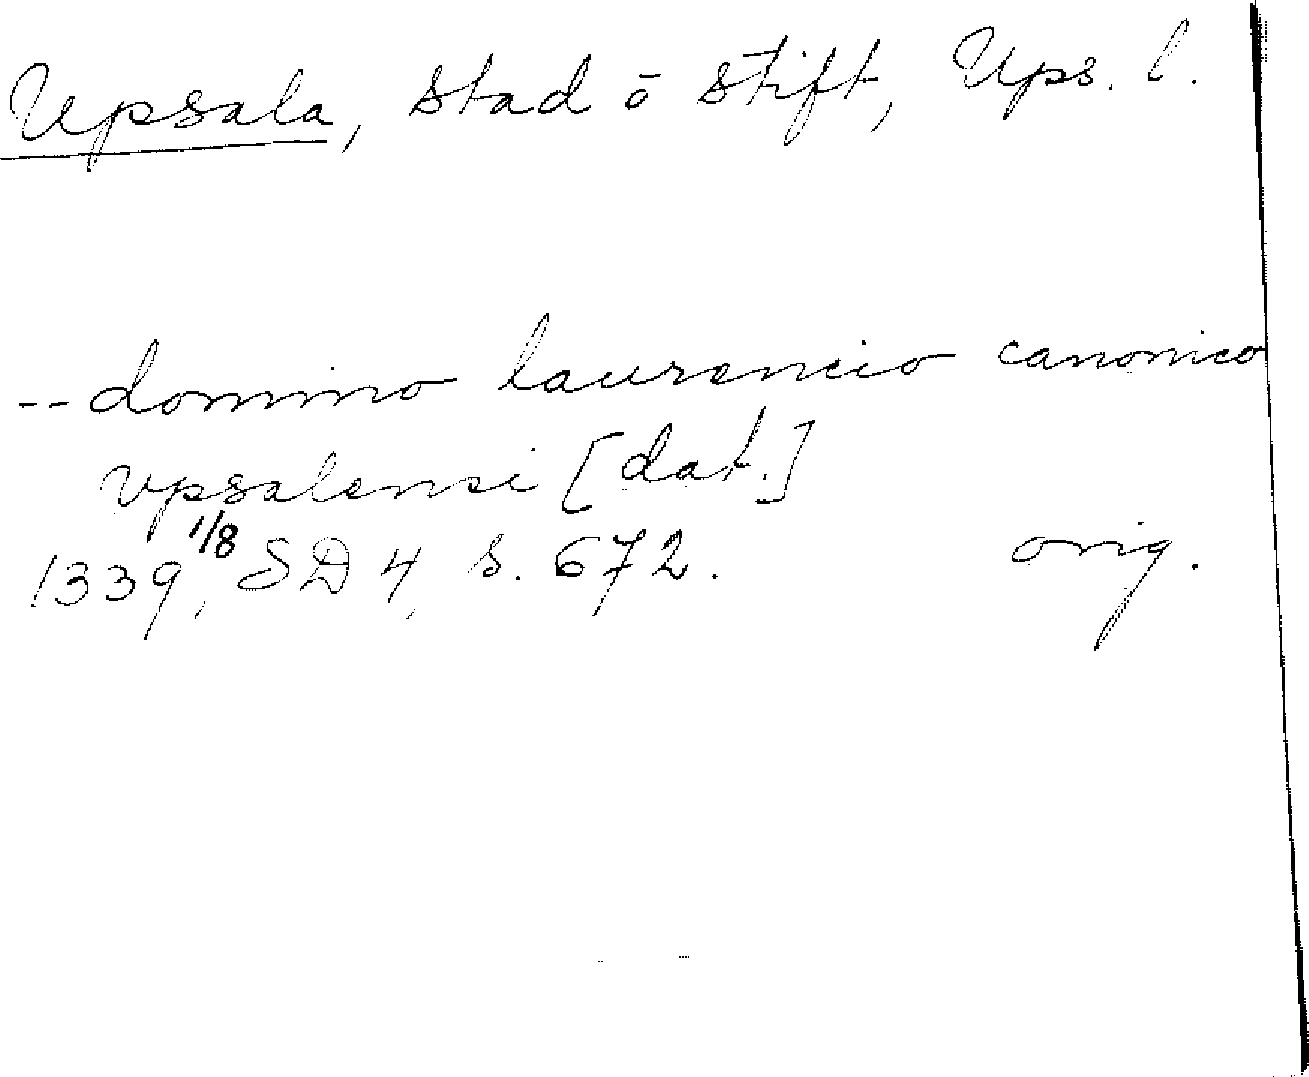 Upsala, stad o stift, Ups. l.
-- domino laurencio canonico
vpsalensi [dat.]
1339, 1/8 SD 4, s. 672. orig.